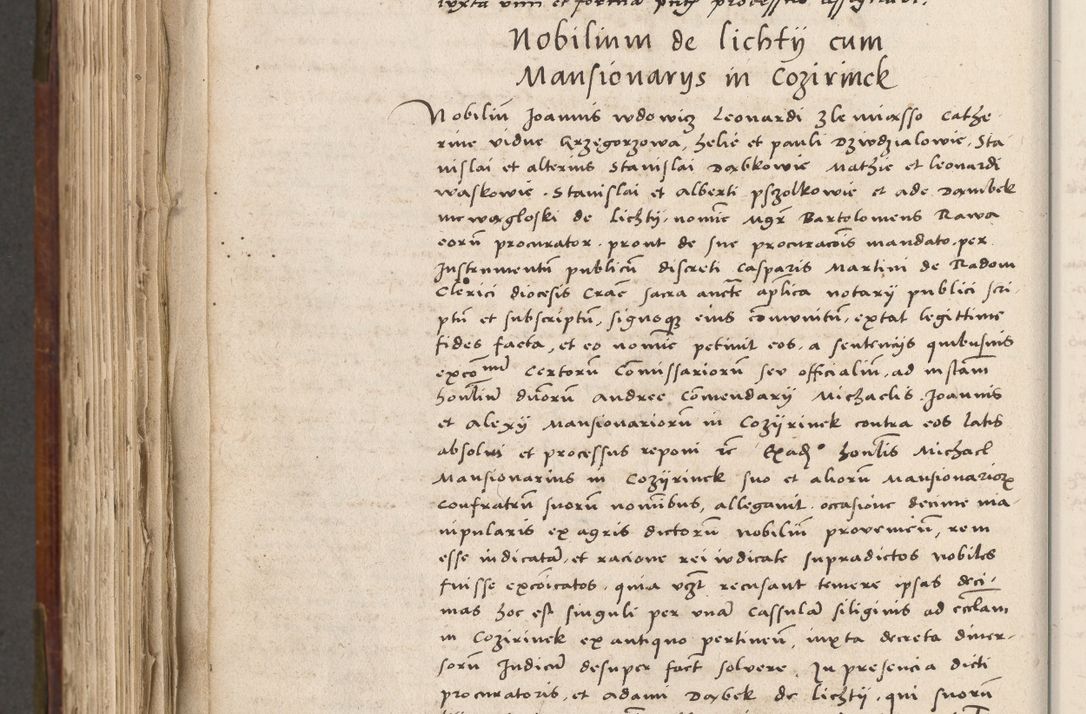 iuxta vim et forma
Nobilium de lichtÿ cum
Mansionarÿs in Cozirinek
Nobiliũ Joannis wdowicz Leonardi Cathe
rine vidue Grzegorzowa, helie et pauli Dziwdzialowie, Sta
nislai et alterius Stanislai Dąbkowie Mathie et leonardi
waskowie. Stanislai et Alberti pszolkowie et ade Dambek
de lichtÿ. nomĩe Mgr̃ Bartolomeus Rawa
eorũ procurator. prout de sue procuracõis mandato. per
Instrumentũ publicũ discreti Casparis Martini de Radom
Clerici diocesis Cracẽ sacra auctẽ ap̃lica notarÿ publici scri-
ptũ et subscriptũ, signoqz eius cõmunitũ, extat legittime
fides facta, et eo nomĩe petiuit eos. a sentencÿs quibusuis
excõ Certorũ Cõmissariorũ seu officialiũ, ad instam̃
honliũ duorũ Andree Cõmendarÿ Michaelis. Joannis
et Alexÿ Mansionariorũ in Cozÿrinek contra eos latis
absolui et processus reponi rc̃ honlis Michael
Mansionarius in Cozÿrinek suo et aliorũ Mansionarior
Confratrũ suorũ nomĩbus, allegauit. occasione decime ma-
nipularis ex agris dictorũ nobiliũ proueniẽn, rem
esse iudicatã, et racione rei iudicate supradictos nobiles
fuisse excõicatos. quia recusant temere ipsas deci-
mas hoc est singuli per unã Cassulã siliginis ad eccl̃am
in Cozirinek ex antiquo pertineñ, iuxta decreta diuer-
sorũ Judicũ desuper fact̃ soluere. In presencia dicti
procuratoris, et Adami Dąbek de lichtÿ. qui suorũ